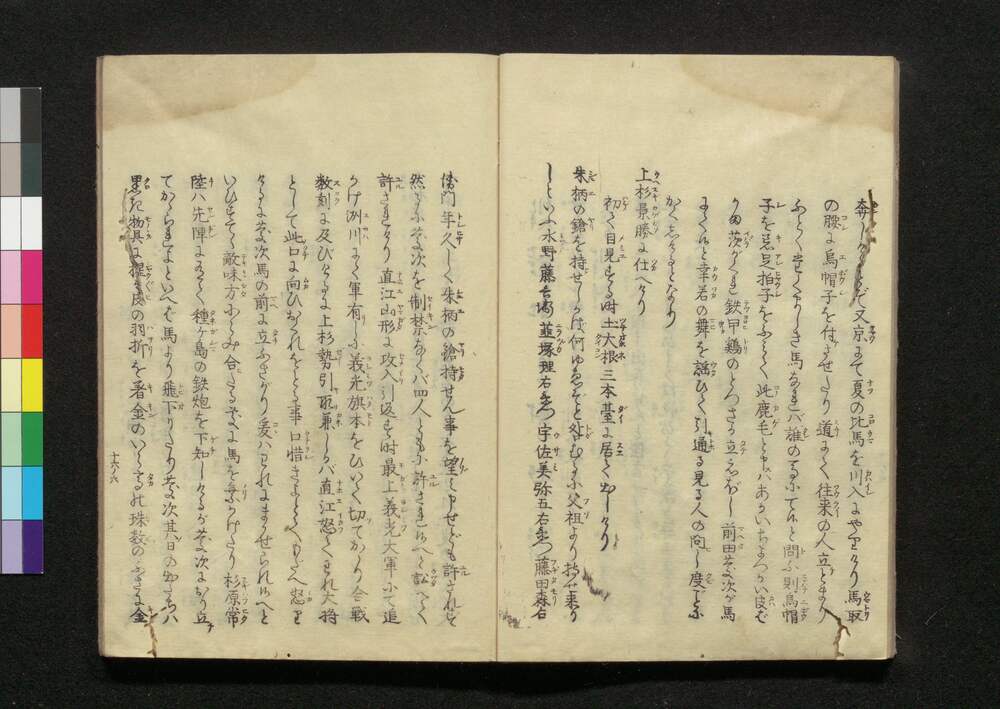 又京にて夏の比馬を川入にやりけり馬取
の腰に烏帽子を付させたり道にて往来の人立とまり
ふとくたくましき馬なれば誰の馬にてやと問ふ則烏帽
子を着足拍子をふみて此鹿毛と申はあかいちよつかい皮ばかま
茨がくれ鉄甲鶏のとつさか立ゑぼし前田慶次が馬
にて候と幸若の舞を謡ひて引通る見る人の向し度に
かくしけるとなり
上杉景勝に仕へけり
初て目見する時土大根三本台に居て出しけり
朱柄の鎗を持せしかば何ゆゑぞと咎むるに父祖より持せ来り
しといふ水野藤兵衛韮塚理右衛門宇佐美弥五右衛門藤田森右
衛門年久しく朱柄の鎗持せん事を望申せども許されず
然るに慶次を制禁なくバ四人ともに許され候へと訟へて
許されけり直江山形に攻入引返す時最上義光大軍にて追
かけ洲川にて軍有し義光旗本をひいて切てかかり合戦
数刻に及びけるに上杉勢引取兼しかバ直江怒てわれ大将
として此口に向ひおくれをとる事口惜きよとてへもだへ怒り
けるに慶次馬の前に立ふさがり爰ハわれにまかせられ候へと
いひすてて敵味方にらみ合たる中に馬を乗かけたり杉原常
陸ハ先陣にて種ケ島の鉄炮を下知しけるが慶次にかり立
てかられよといへば馬より飛下りたり慶次其日の出立ハ
黒き物具に猩々皮の羽折を着金のいらたかの珠数のふさに金
十六ノ六